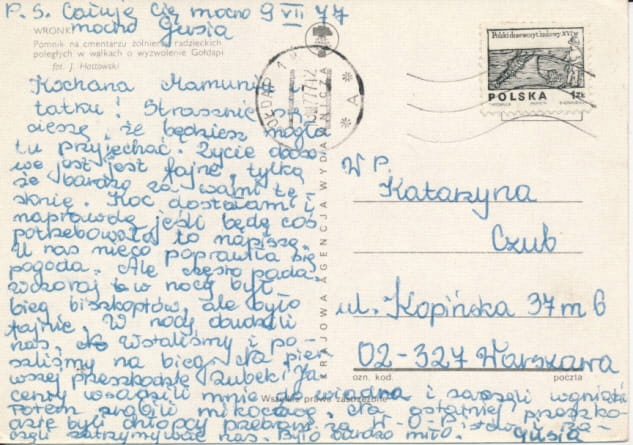 P.S. Całuję Cię mocno 9 VII 77
mocno Gusia
WRONKI
Pomnik na cmentarzu żołnierzy radzieckich
poległych w walkach o wyzwolenie Gołdapi
fot. J. Hattowski
Kochana Mamuniu
tatku! Strasznie się
cieszę, że będziesz mogła
tu przyjechać. Życie obozo
we jest fajne, tylko
że bardzo za wami tę-
sknię. Koc dostałam i
naprawdę jeśli będę coś
potrzebowała to napiszę.
U nas nieco poprawiła się
pogoda. Ale często pada
wczoraj w nocy był
bieg biszkoptów, ale było
fajnie. W nocy obudzili
nas, wstaliśmy i po-
szliśmy na bieg. Na pier
wszej przeszkodzie
wsadzili mnie i zaczęli
Potem zrobili mi Na ostatniej przeszko-
dzie byli chłopcy przebrani za W.O.P.
nas. Było bardzo miło.
KRAJOWA AGENCJA WYDAWNICZA
Wszelkie prawa zastrzeżone
GOŁDAP 1
A
Polski drzeworyt ludowy XVI w.
POLSKA 1 ZŁ
W P.
Katarzyna
Czub
ul. Kopińska 37 m 6
02-327 Warszawa
ozn. kod. poczta